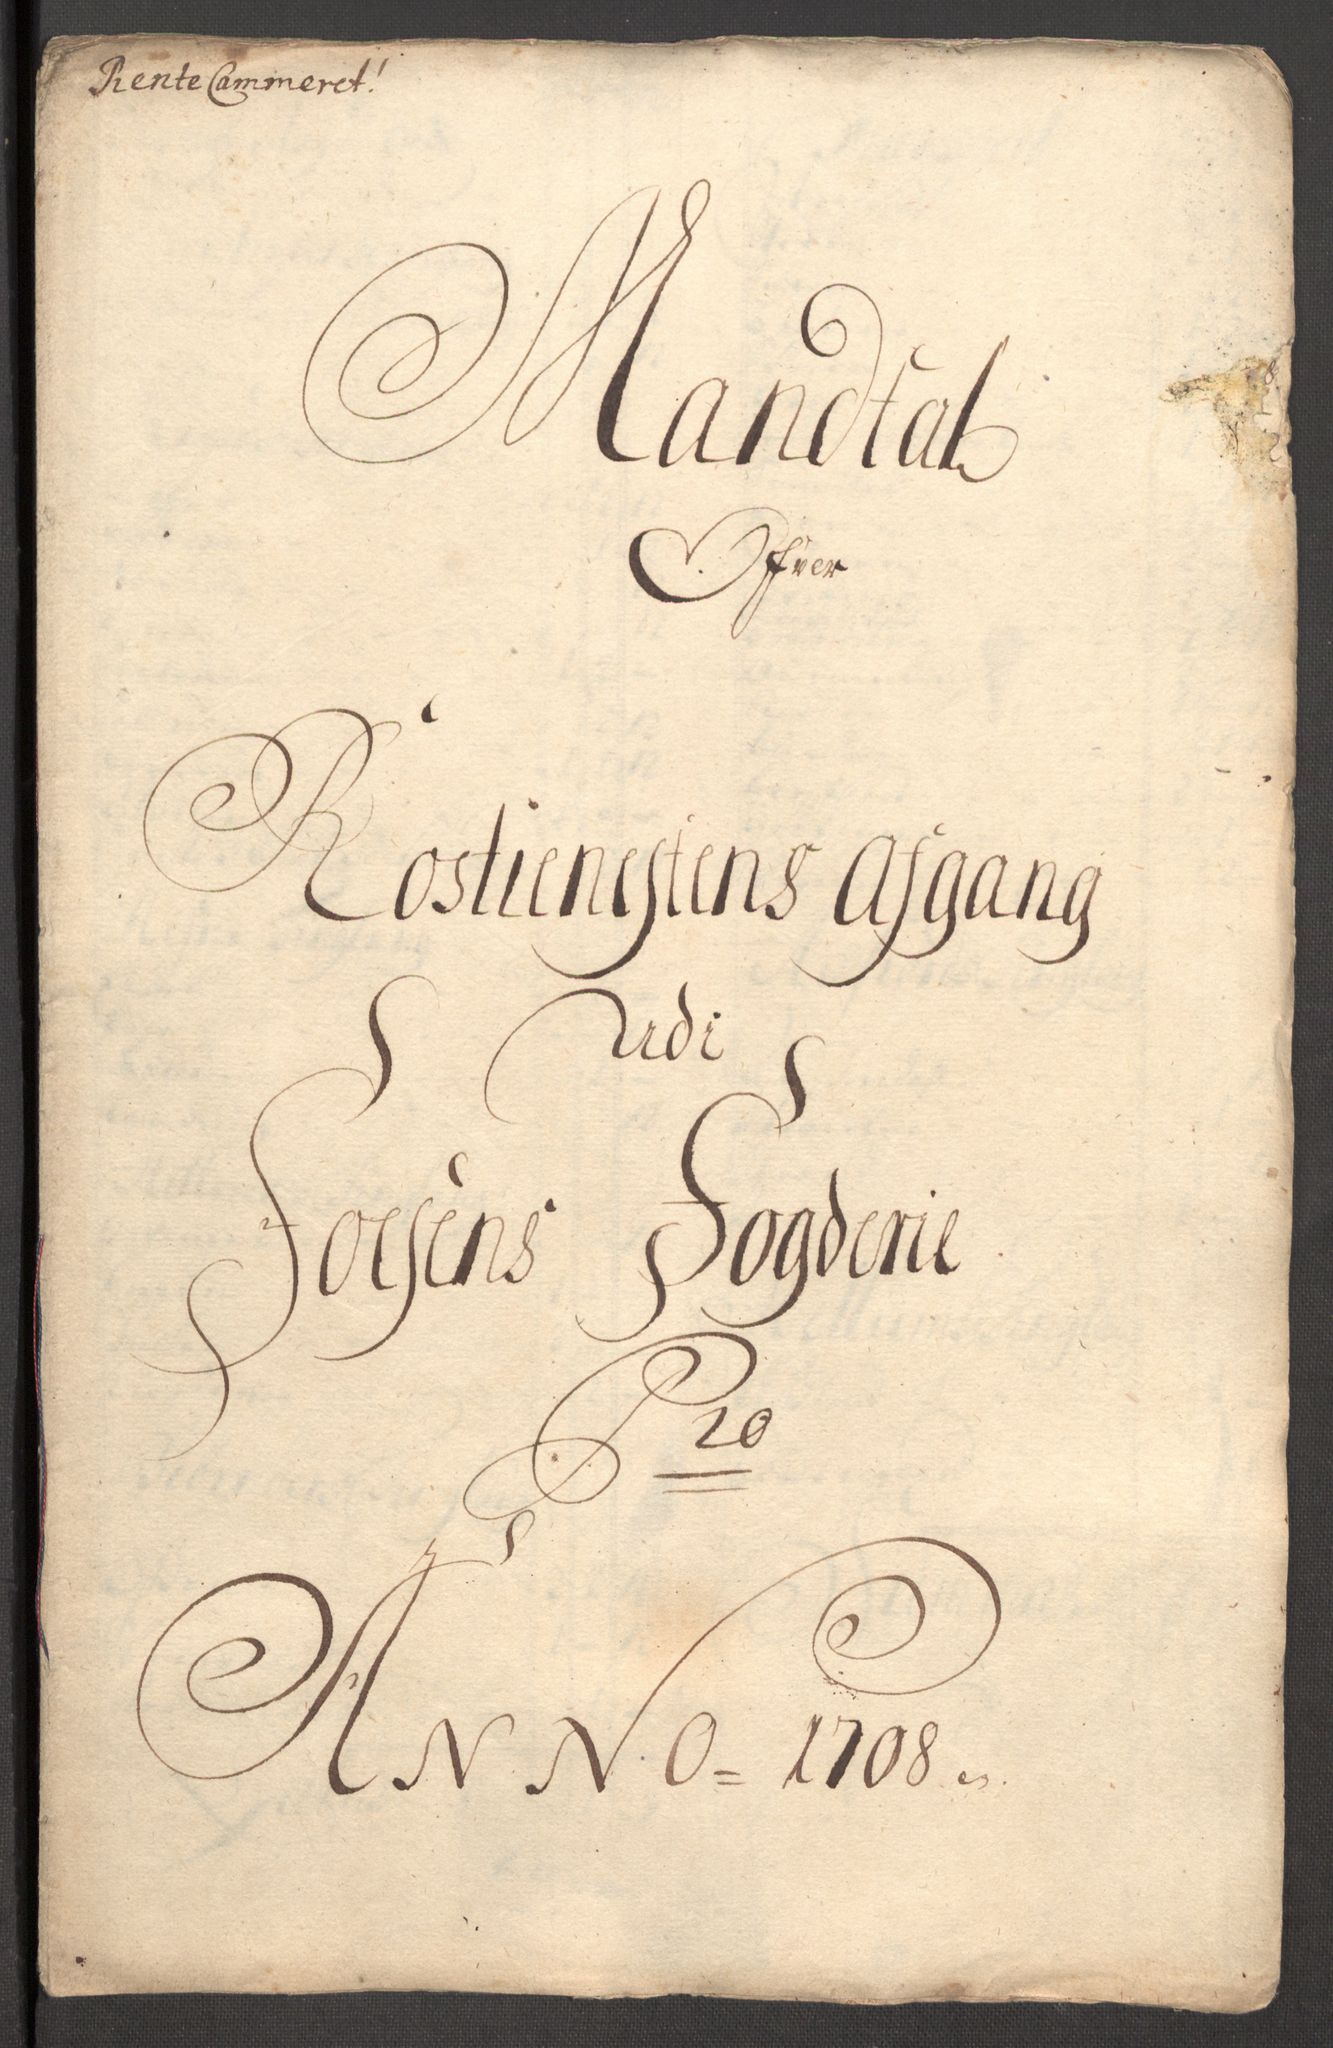 Rente Cammeret!
Mandtal
Ofver
Rostienestens Afgang
Udi
Foesens Fogderie
Pro
ANNO = 1708